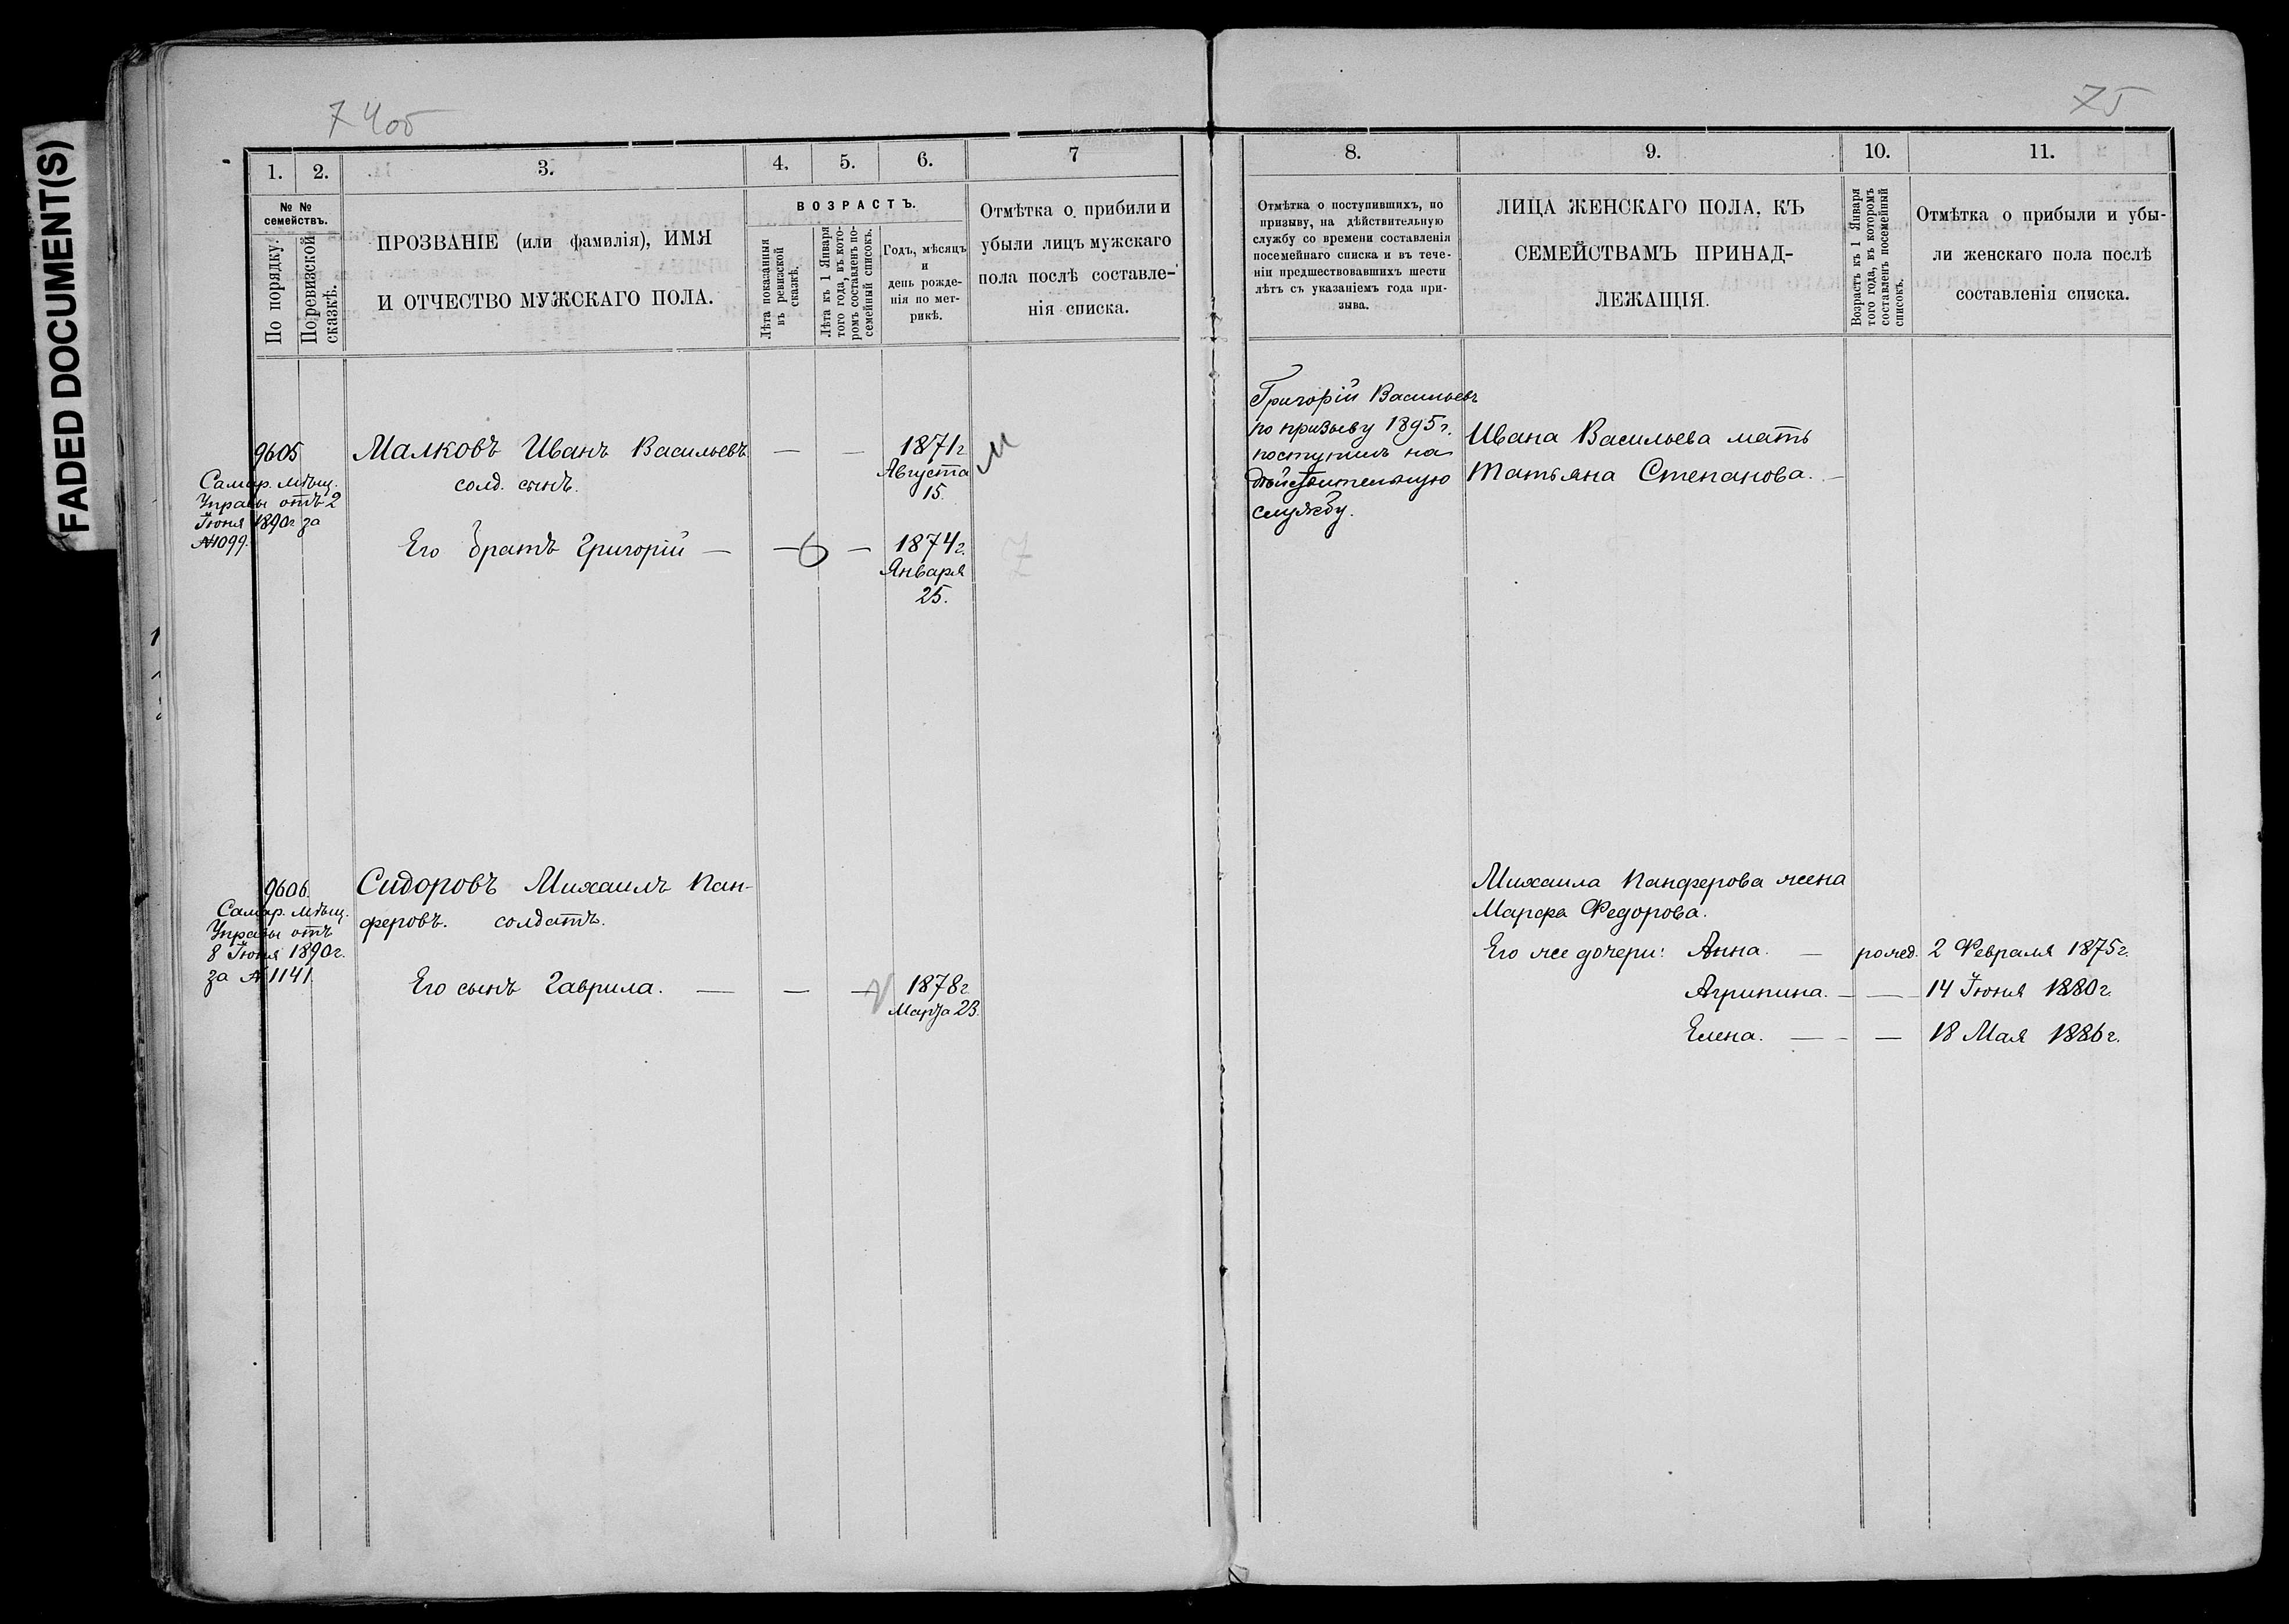 FADED DOCUMENT(S)
74об
75
1.
2.
3.
4.
5.
6.
7
№ №
семействъ.
По порядку.
По ревизской
сказкѣ.
ПРОЗВАНІЕ (или фамилія), ИМЯ
И ОТЧЕСТВО МУЖСКАГО ПОЛА.
ВОЗРАСТЪ.
Лѣта показанныя
въ ревизской
сказкѣ.
Лѣта къ 1 Января
того года, въ кото-
ромъ составленъ по-
семейный списокъ.
Годъ, мѣсяцъ
и
день рожде-
нія по мет-
рикѣ.
Отмѣтка о прибыли и
убыли лицъ мужскаго
пола послѣ составле-
нія списка.
9605
Самар. мѣщ.
Управы отъ 2
Іюня 1890г за
№1099.
Малковъ Иванъ Васильевъ — —
солд. сынъ.
1871г
Августа
15.
М
Его братъ Григорій — — —
1874г.
Января
25.
9606
Самар. мѣщ.
Управы отъ
8 Іюня 1890г.
за №1141.
Сидоровъ Михаилъ Пан-
феровъ. солдатъ.
Его сынъ Гаврила. — — —
1878г
Марта 23.
8.
9.
10.
11.
Отмѣтка о поступившихъ, по
призыву, на дѣйствительную
службу со времени составленія
посемейнаго списка и въ тече-
ніи предшествовавшихъ шести
лѣтъ съ указаніемъ года при-
зыва.
ЛИЦА ЖЕНСКАГО ПОЛА, КЪ
СЕМЕЙСТВАМЪ ПРИНАД-
ЛЕЖАЩІЯ.
Возрастъ къ 1 Января
того года, въ которомъ
составленъ посемейный
списокъ.
Отмѣтка о прибыли и убы-
ли женскаго пола послѣ
составленія списка.
Григорій Васильевъ
по призыву 1895г.
поступилъ на
дѣйствительную
службу.
Ивана Васильева мать
Татьяна Степанова. —
Михаила Панферова жена
Марфа Федорова.
Его же дочери: Анна. — рожд. 2 Февраля 1875г.
Агрипина. — — 14 Іюня 1880г.
Елена. — — 18 Мая 1886г.